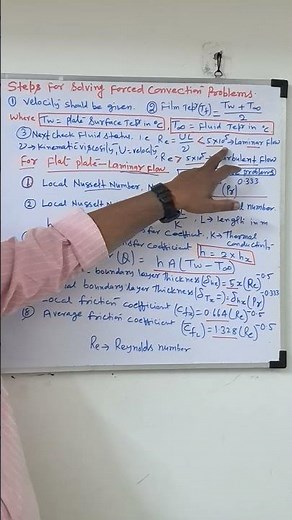 Steps for Solving Forced Convection Problems.
① Velocity should be given. ② Film Temp (Tf) = Tw + T∞ / 2
Where Tw = plate Surface Temp in °c T∞ = Fluid Temp in °c
③ Next check Fluid status. i.e Re = UL / ν < 5×10⁵ → Laminar Flow
ν → kinematic viscosity, U = velocity, Re > 5×10⁵ Flow
For Flat-plate - Laminar Flow problems
① Local Nusselt Number, (Pr)^0.333
② Local Number
L → length in m
coefficient. K → Thermal Conductivity
coefficient h = 2 × hx
(Q) = h A (Tw − T∞)
boundary layer thickness (δhx) = 5x (Re)^-0.5
boundary layer thickness (δTx) = δhx (Pr)^-0.333
Local friction coefficient (Cfx) = 0.664 (Re)^-0.5
⑧ Average friction coefficient (C̄fL) = 1.328 (Re)^-0.5
Re → Reynolds number